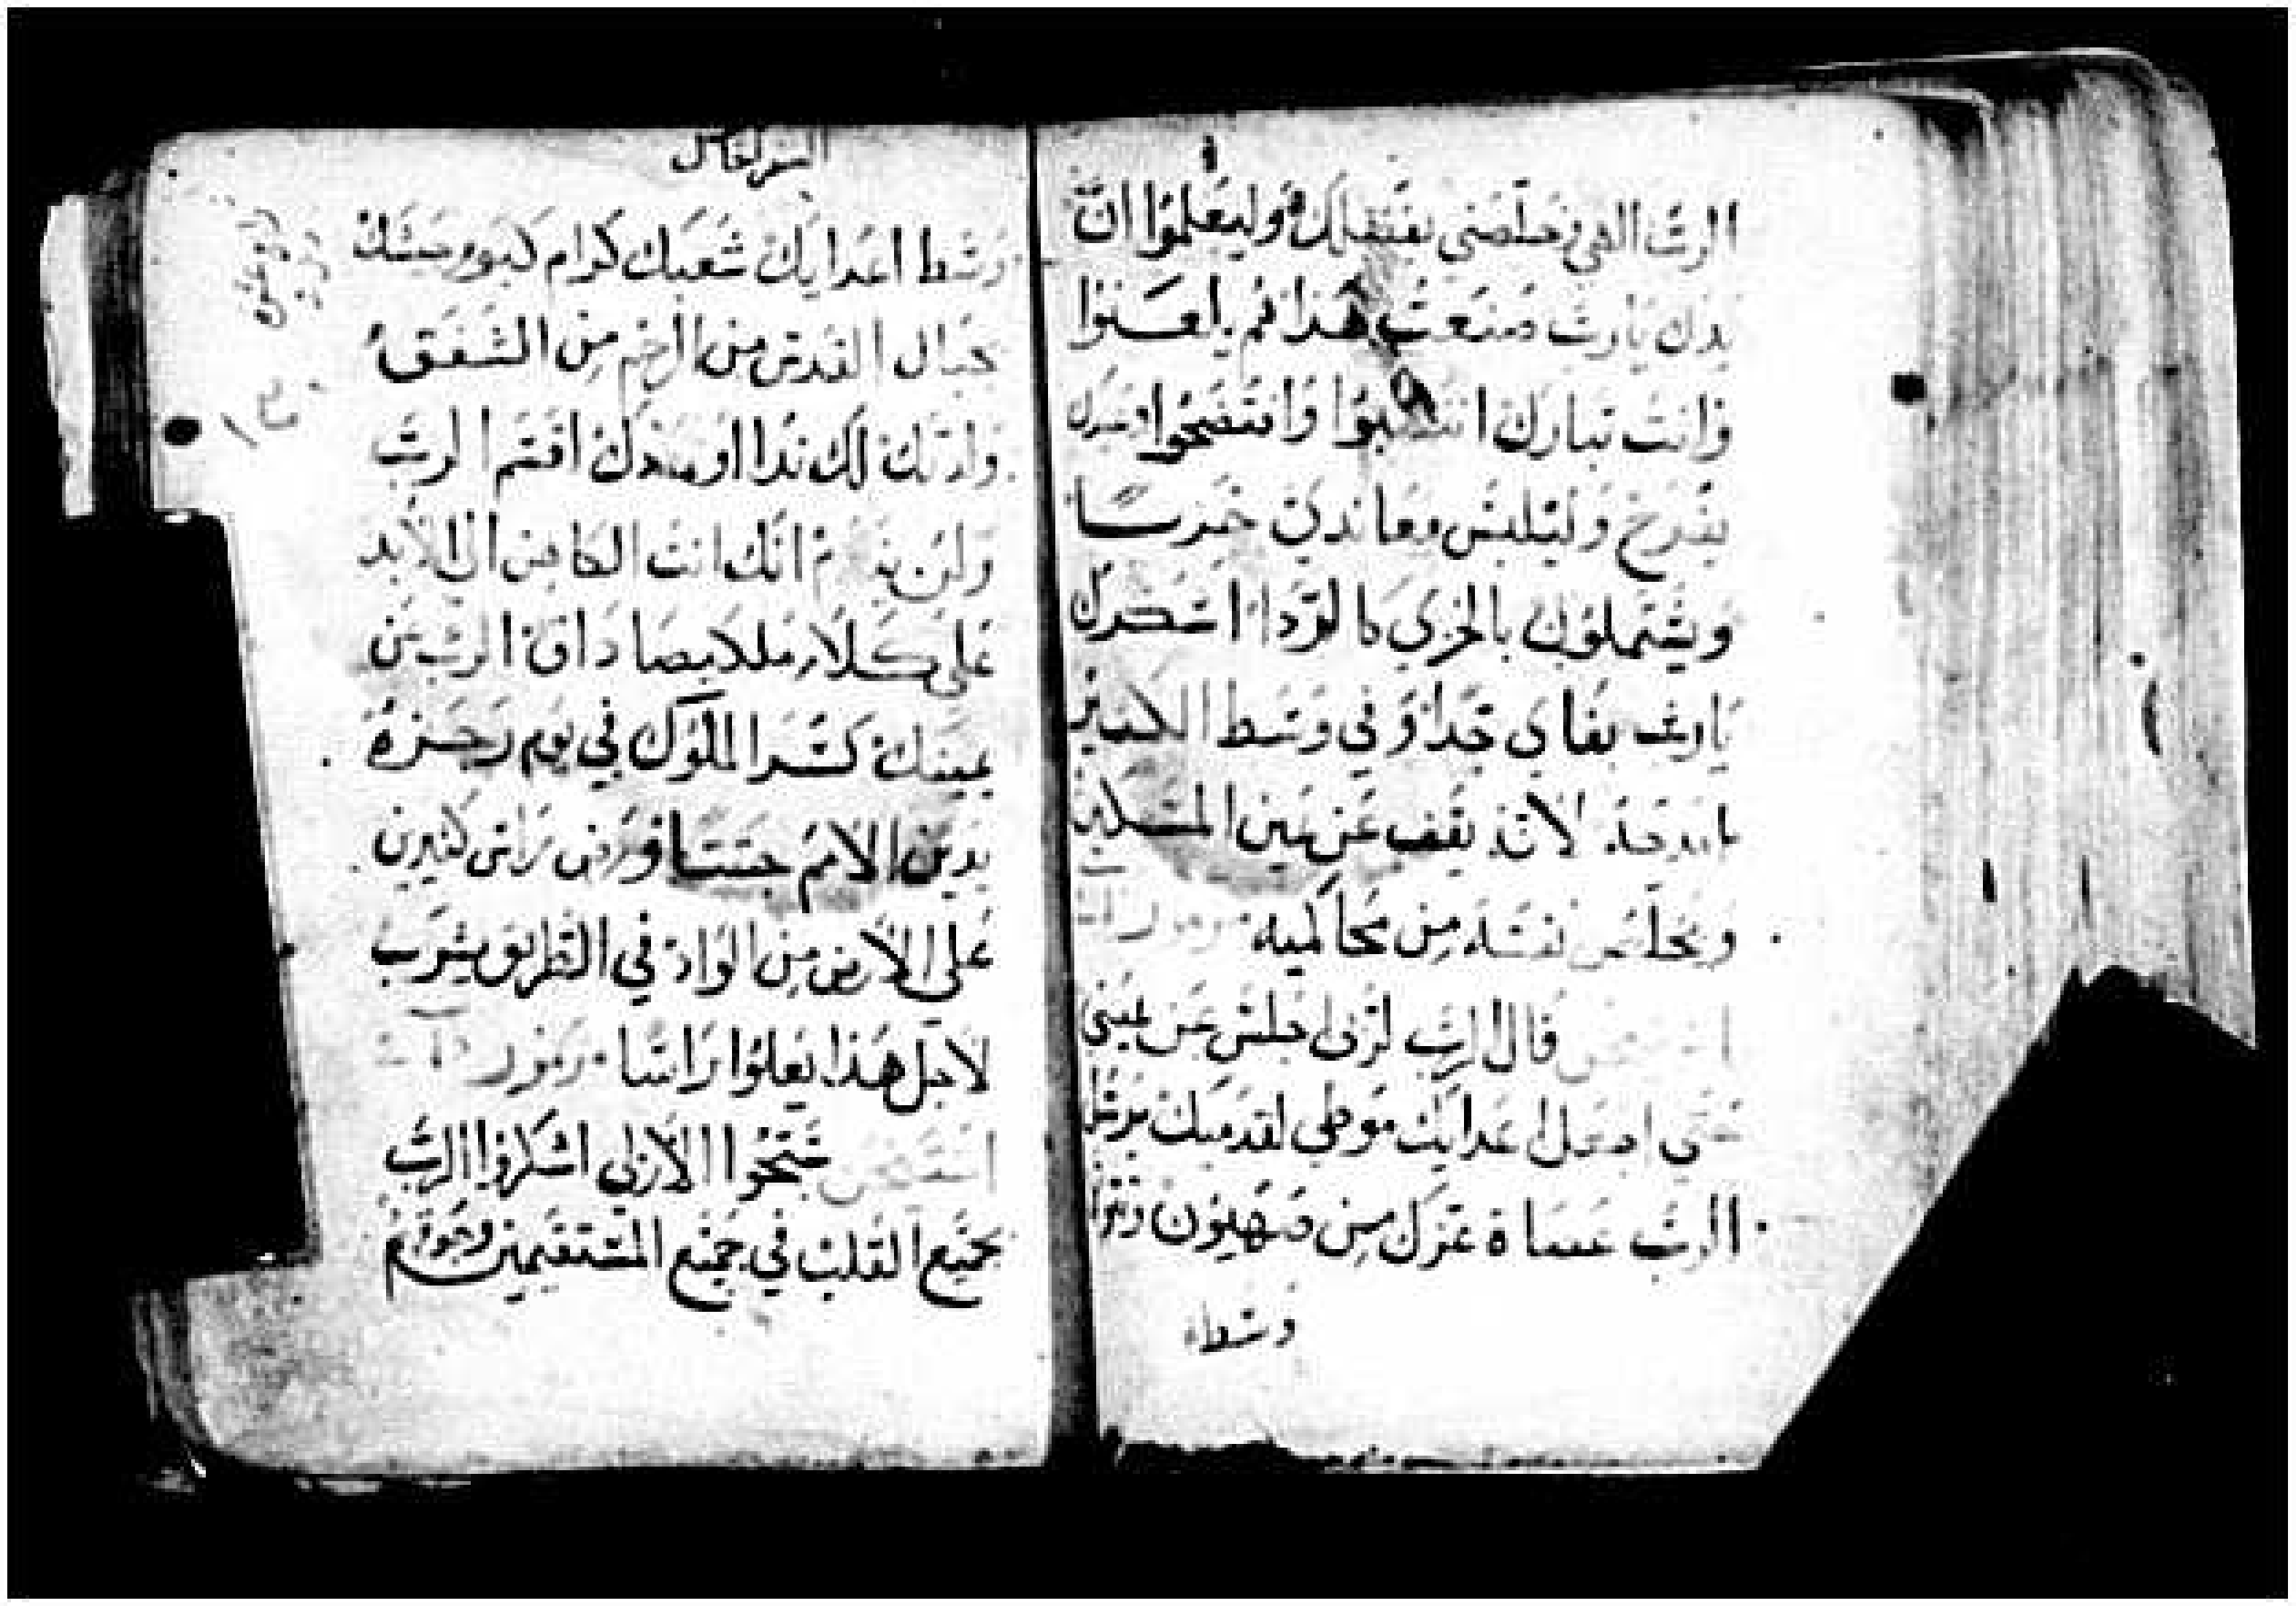 الرب الهي خلصني بفضلك وليعلموا ان
يدك يارب صنعت هذا هم يلعنوا
وانت تبارك وافتضحوا وعبدك
يفرح وليلبس معاندي خزيا
ويشتملون بالخزي كالردا اشكرك
يارب بفاي جدا وفي وسط الكثير
امدحه لانه يقف عن يمين المسكين
ويخلص نفسه من محاكميه مزمور
قال الرب لربي اجلس عن يميني
حتى اجعل اعدايك موطي لقدميك يرسل
الرب عصاة عزك من صهيون وتقرا
وسط
السفر الخامس
وسط اعدايك شعبك كرام كيوم جيشك
جبال القدس من الرحم من الشفق
ولدتك لك ندا اقسم الرب
ولن انك انت الكاهن الي الابد
علي كلام ملكيصاداق الرب عن
يمينك كسر الملوك في يوم رجزه
يدين الامم جثثا ورض راس كثيرين
علي الارض من الواد في الطريق يشرب
لاجل هذا يعلوا راسا مزمور
سبحوا الازلي اشكروا الرب
بجميع القلب في جميع المستقيمين وجوقهم